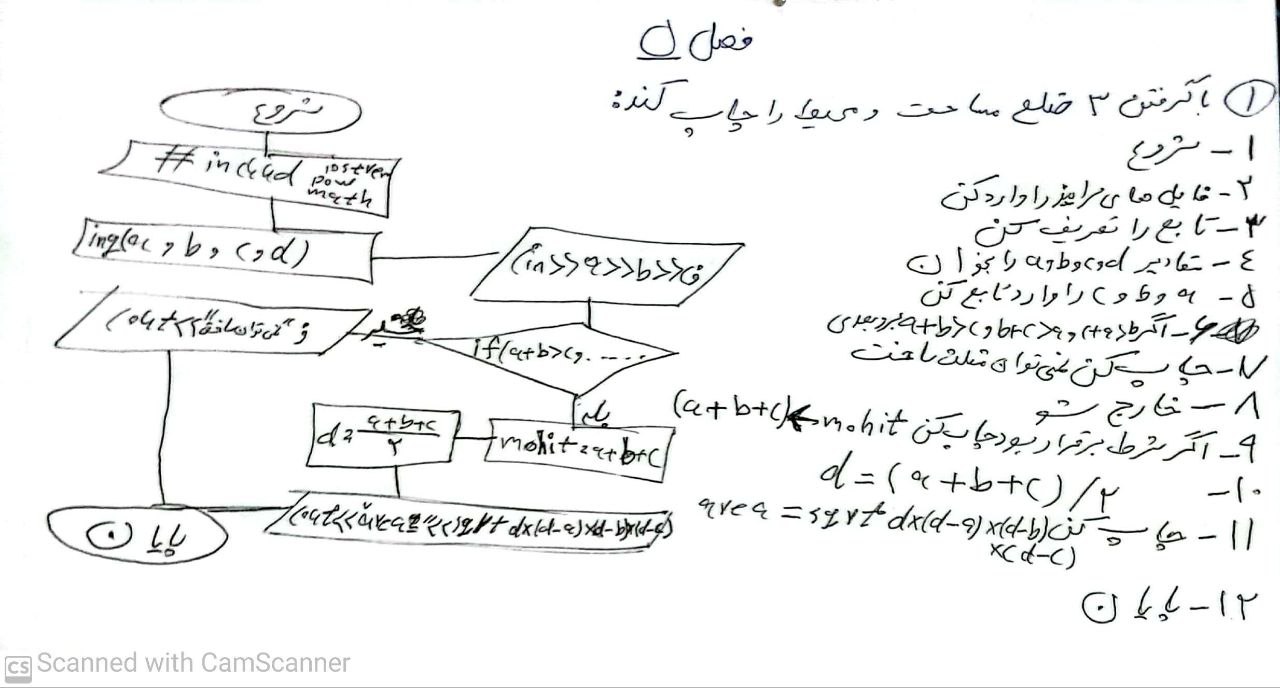 فصل ۵
۱ با گرفتن ۳ ضلع مساحت و محیط را چاپ کند:
۱- شروع
۲- فایل های را وارد کن
۳- تابع را تعریف کن
٤- مقادیر a,b,c,d را بخوان
۵- a و b و c را وارد تابع کن
۶- اگر a+b>c, b+c>a, c+a>b
۷- چاپ کن نمی توان مثلث ساخت
۸- خارج شو
۹- اگر شرط برقرار بود چاپ کن mohit ← (a+b+c)
۱۰- d=(a+b+c)/۲
۱۱- چاپ کن area = sqrt d×(d-a)×(d-b)
×(d-c)
۱۲- پایان
شروع
# includ iostren
pow
math
(a, b, c, d)
cin>>a>>b>>
if(a+b>c, .....
cout<<"
بله
mohit = a+b+c
d = a+b+c
۲
cout<<"area="<<sqrt d×(d-a)×(d-b)×(d-c)
پایان
CS Scanned with CamScanner